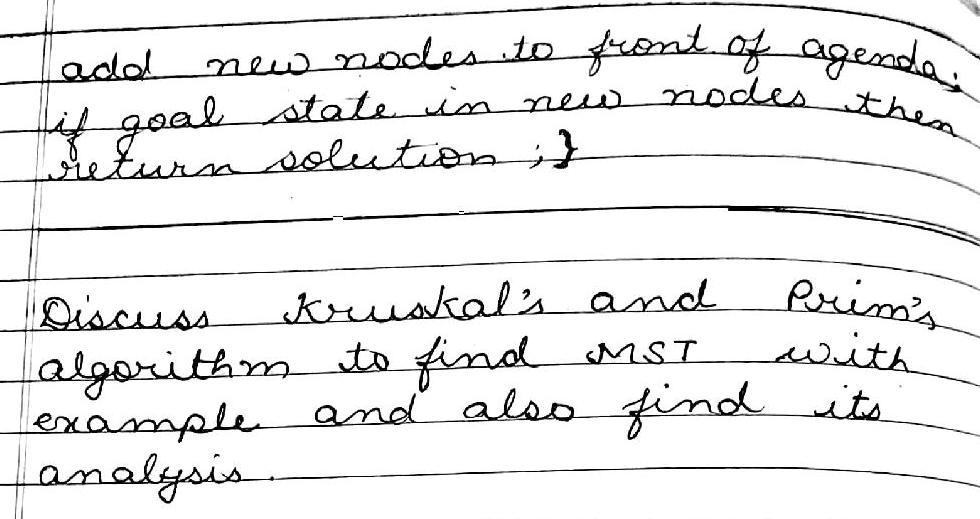 add new nodes to front of agenda;
if goal state in new nodes then
return solution ; }
Discuss Kruskal's and Prim's
algorithm to find MST with
example and also find its
analysis.